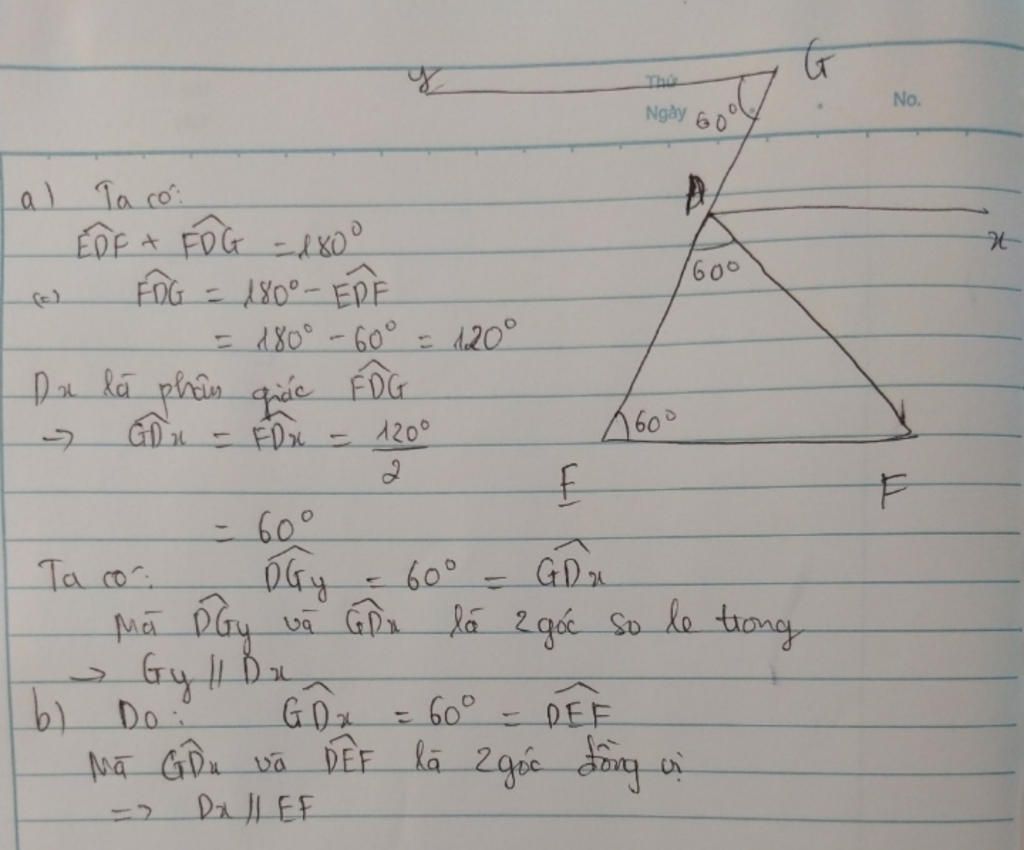 y
G
Thứ
Ngày
No.
60°
a) Ta có:
D
x
EDF + FDG = 180°
60°
(=) FDG = 180° - EDF
= 180° - 60° = 120°
Dx là phân giác FDG
→ GDx = FDx = 120°/2
60°
E
F
= 60°
Ta có: DGy = 60° = GDx
Mà DGy và GDx là 2 góc so le trong
→ Gy // Dx
b) Do: GDx = 60° = DEF
Mà GDx và DEF là 2 góc đồng vị
=> Dx // EF